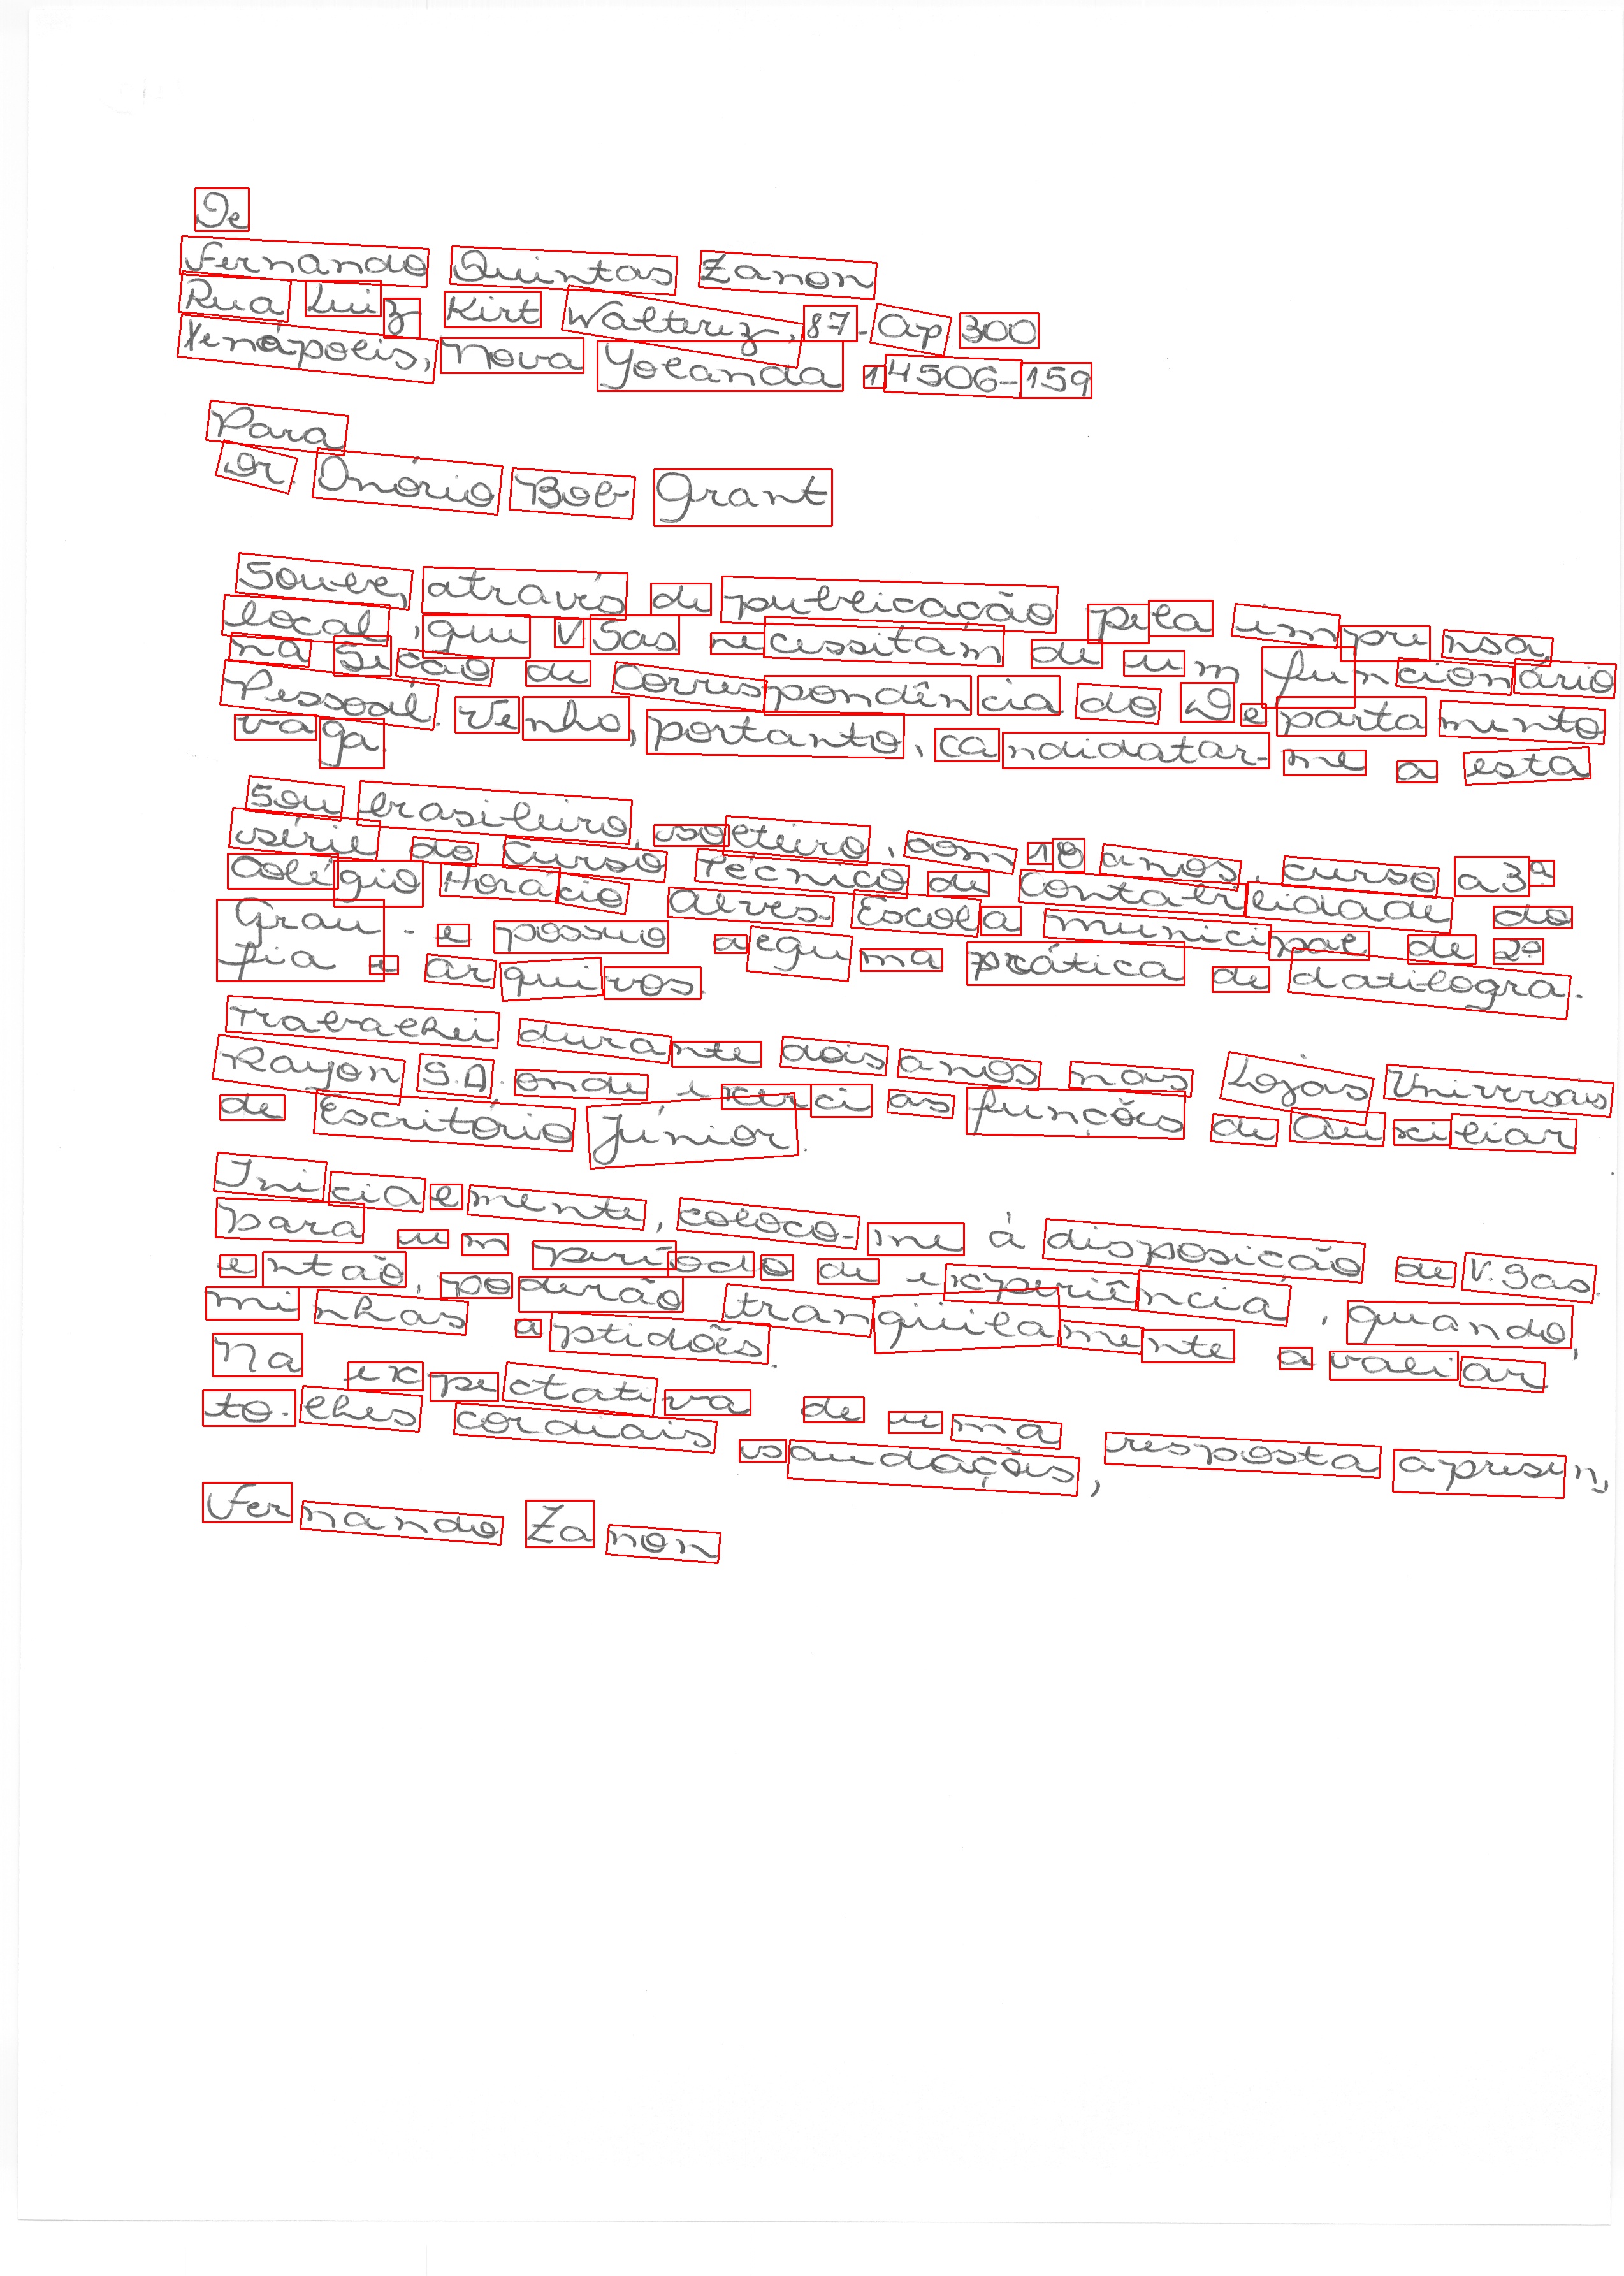 De
Fernando Quintas Zanon
Rua Luiz Kirt Walterez, 87- Ap 300
Xenápolis, Nova Yolanda 14506-159
Para
Dr. Onório Bob Grant
Soube, através de publicação pela imprensa
local, que V Sas necessitam de um funcionário
na Seção de Correspondência do Departamento
Pessoal. Venho, portanto, candidatar-me a esta
vaga.
Sou brasileiro, solteiro, com 18 anos, curso a 3ª
série do Curso Técnico de Contabilidade do
Colégio Horácio Alves - Escola Municipal de 2º
Grau - e possuo alguma prática de datilogra-
fia e arquivos.
Trabalhei durante dois anos nas Lojas Universais
Rayon S.A. onde exerci as funções de Auxiliar
de Escritório Júnior.
Inicialmente, coloco-me à disposição de V. Sas.
para um período de experiência, quando,
então, poderão tranqüilamente avaliar
minhas aptidões.
Na expectativa de uma resposta apresen-
to-lhes cordiais saudações,
Fernando Zanon